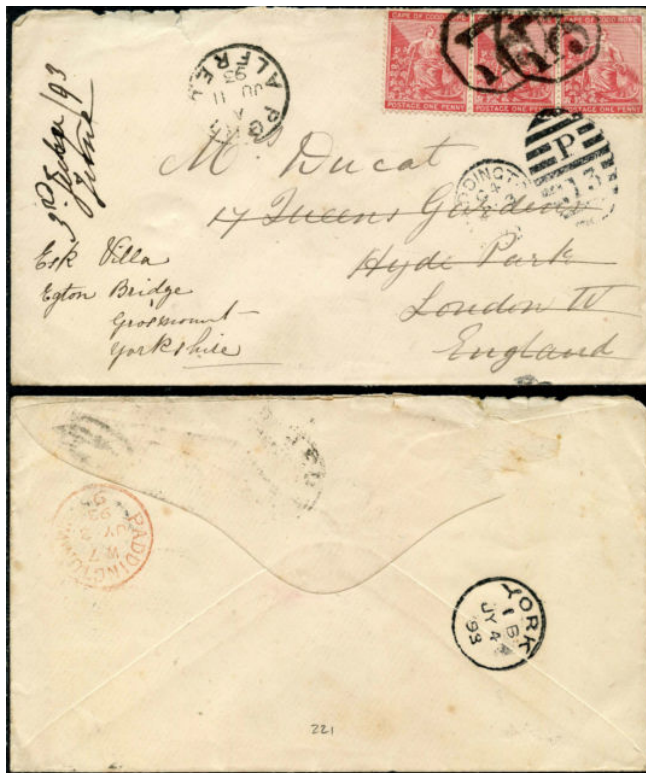 CAPE OF GOOD HOPE CAPE OF GOOD HOPE CAPE OF GOOD HOPE
POSTAGE ONE PENNY POSTAGE ONE PENNY POSTAGE ONE PENNY
ALFRED
A
JU 11
93
P
13
3rd
/93
M. Ducat
17 Queens Gardens
Hyde Park
London W
England
Esk Villa
Egton Bridge
Grosmount
Yorkshire
PADDINGTON
W 7
JY 3
93
YORK
1 B
JY 4
93
221